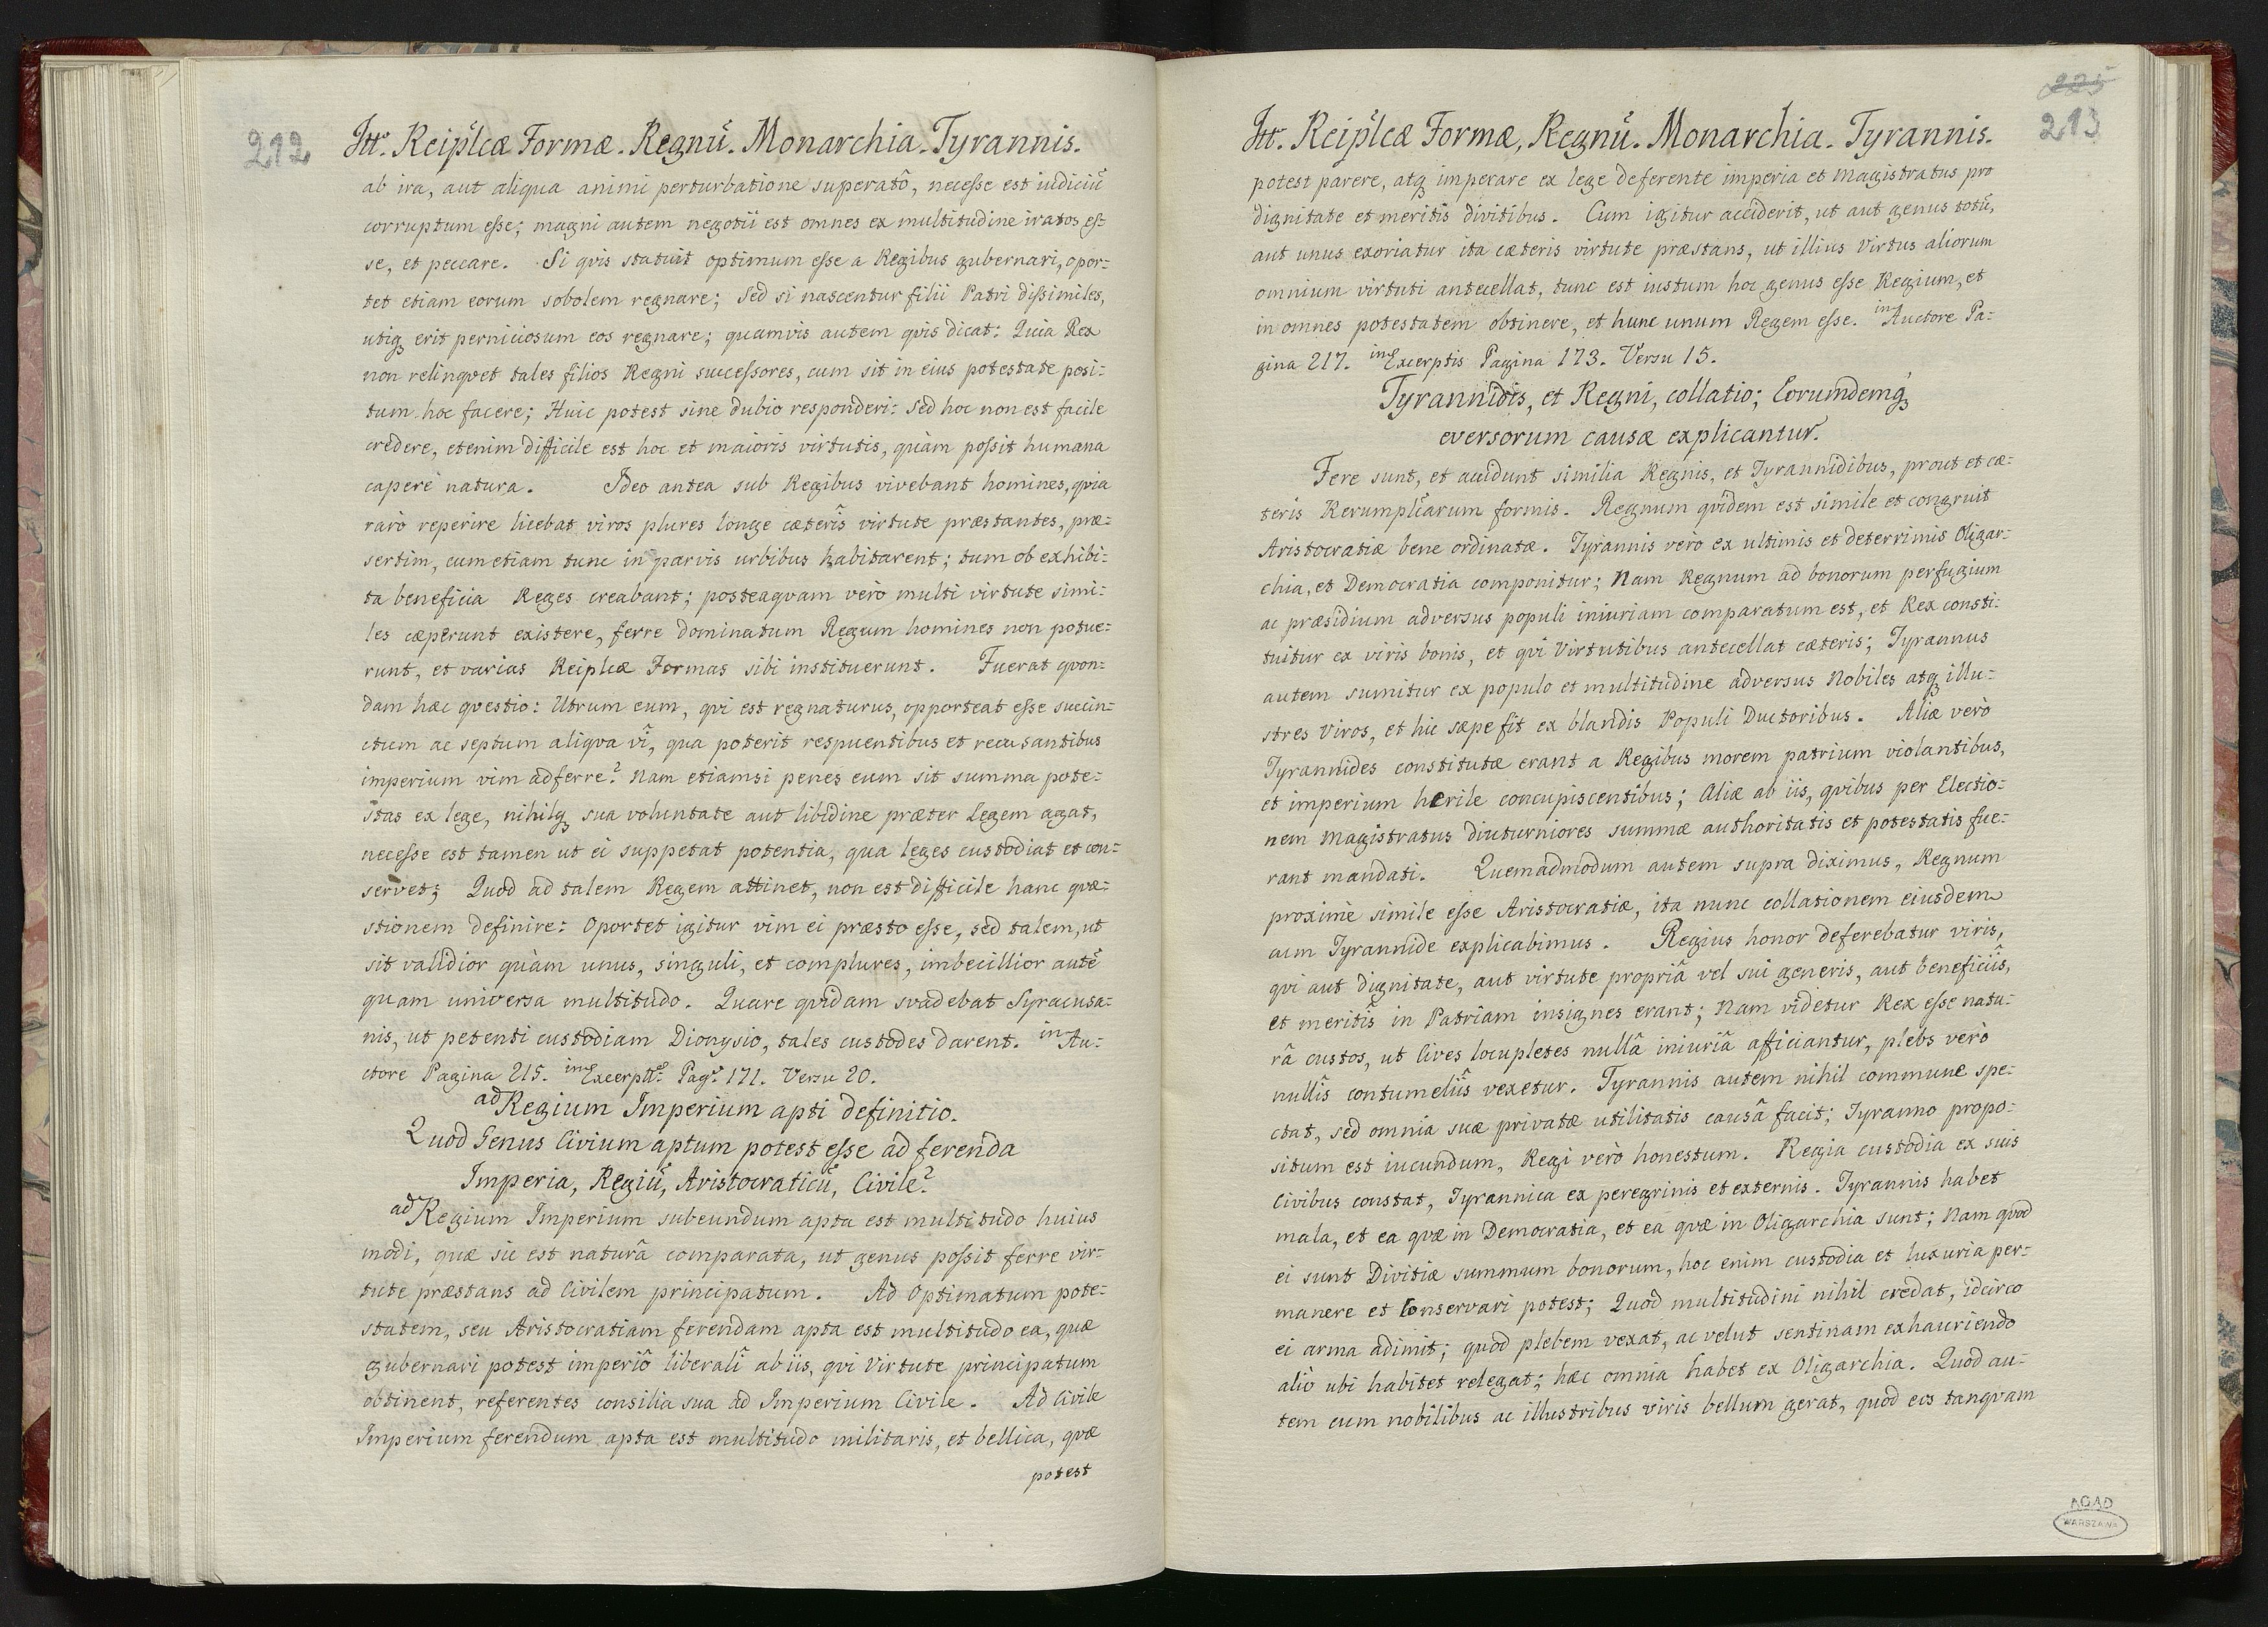 212
Itt. Reiplcæ Formæ. Regnũ. Monarchia. Tyrannis.
ab ira, aut aliqua animi perturbatione superatô, necesse est iudiciũ
corruptum esse; magni autem negotii est omnes ex multitudine iratos es=
se, et peccare. Si qvis statuit optimum esse a Regibus gubernari, opor=
tet etiam eorum sobolem regnare; Sed si nascentur filii Patri dissimiles,
utiq erit perniciosum eos regnare; quamvis autem qvis dicat: Quia Rex
non relinqvet tales filios Regni successores, cum sit in eius potestate posi=
tum hoc facere; Huic potest sine dubio responderi: Sed hoc non est facile
credere, etenim difficile est hoc et maioris virtutis, quàm possit humana
capere natura. Ideo antea sub Regibus vivebant homines, qvia
rarò reperire licebat viros plures longe cæterîs virtute præstantes, præ=
sertim, cum etiam tunc in parvis urbibus habitarent; tum ob exhibi=
ta beneficia Reges creabant; posteaqvam verò multi virtute simi=
les cæperunt existere, ferre dominatum Regum homines non potue=
runt, et varias Reiplcæ Formas sibi instituerunt. Fuerat qvon=
dam hæc qvestio: Utrum eum, qvi est regnaturus, opporteat esse succin=
ctum ac septum aliqva vî, qua poterit respuentibus et recusantibus
imperium vim adferre? Nam etiamsi penes eum sit summa pote=
stas ex lege, nihilq sua voluntate aut libidine præter Legem agat,
necesse est tamen ut ei suppetat potentia, qua leges custodiat et con=
servet; Quod ad talem Regem attinet, non est difficile hanc qvæ=
stionem definire: Oportet igitur vim ei præsto esse, sed talem, ut
sit validior quàm unus, singuli, et complures, imbecillior autẽ
quam universa multitudo. Quare qvidam svadebat Syracusa=
nis, ut petenti custodiam Dionysio, tales custodes darent. in Au=
ctore Pagina 215. in Excerptis Pag. 171. Versu 20.
ad Regium Imperium apti definitio.
Quod Genus Civium aptum potest esse ad ferenda
Imperia, Regiũ, Aristocraticũ, Civile?
ad Regium Imperium subeundum apta est multitudo huius
modi, quæ sic est naturâ comparata, ut genus possit ferre vir=
tute præstans ad Civilem principatum. Ad Optimatum pote=
statem, seu Aristocratiam ferendam apta est multitudo ea, quæ
gubernari potest imperiô liberalî ab iis, qvi Virtute principatum
obtinent, referentes consilia sua ad Imperium Civile. Ad Civile
Imperium ferendum apta est multitudo militaris, et bellica, qvæ
potest
225
213
Itt. Reiplcæ Formæ, Regnũ. Monarchia. Tyrannis.
potest parere, atq imperare ex lege deferente imperia et Magistratus pro
dignitate et meritîs divitibus. Cum igitur acciderit, ut aut genus totũ,
aut unus exoriatur ita cæteris virtute præstans, ut illius Virtus aliorum
omnium virtuti antecellat, tunc est iustum hoc genus esse Regium, et
in omnes potestatem obtinere, et hunc unum Regem esse. in Auctore Pa=
gina 217. in Excerptis Pagina 173. Versu 15.
Tyrannidis, et Regni, collatio; Eorumdemq
eversorum causæ explicantur.
Fere sunt, et accidunt similia Regnis, et Tyrannidibus, prout et cæ=
teris Rerumplcarum formis. Regnum qvidem est simile et congruit
Aristocratiæ bene ordinatæ. Tyrannis verò ex ultimis et deterrimis Oligar=
chia, et Democratia componitur; Nam Regnum ad bonorum perfugium
ac præsidium adversus populi iniuriam comparatum est, et Rex consti=
tuitur ex viris bonis, et qvi Virtutibus antecellat cæteris; Tyrannus
autem sumitur ex populo et multitudine adversus Nobiles atq illu=
stres Viros, et hic sæpe fit ex blandis Populi Ductoribus. Aliæ verò
Tyrannides constitutæ erant a Regibus morem patrium violantibus,
et imperium herile concupiscentibus; Aliæ ab iis, qvibus per Electio=
nem Magistratus diuturniores summæ authoritatis et potestatis fue=
rant mandati. Quemadmodum autem supra diximus, Regnum
proximè simile esse Aristocratiæ, ita nunc collationem eiusdem
cum Tyrannide explicabimus. Regius honor deferebatur viris,
qvi aut dignitate, aut virtute propriâ vel sui generis, aut beneficiîs,
et meritîs in Patriam insignes erant; Nam videtur Rex esse natu=
râ custos, ut Cives locupletes nullâ iniuriâ afficiantur, plebs verò
nullîs contumeliîs vexetur. Tyrannis autem nihil commune spe=
ctat, sed omnia suæ privatæ utilitatis causâ facit; Tyranno propo=
situm est iucundum, Regi verò honestum. Regia custodia ex suis
Civibus constat, Tyrannica ex peregrinis et externis. Tyrannis habet
mala, et ea qvæ in Democratia, et ea qvæ in Oligarchia sunt; Nam qvod
ei sunt Divitiæ summum bonorum, hoc enim custodia et luxuria per=
manere et Conservari potest; Quod multitudini nihil credat, idcirco
ei arma adimit; quod plebem vexat, ac velut sentinam exhauriendo
aliò ubi habitet relegat; hæc omnia habet ex Oligarchia. Quod au=
tem cum nobilibus ac illustribus viris bellum gerat, quod eos tanqvam
AGAD
WARSZAWA